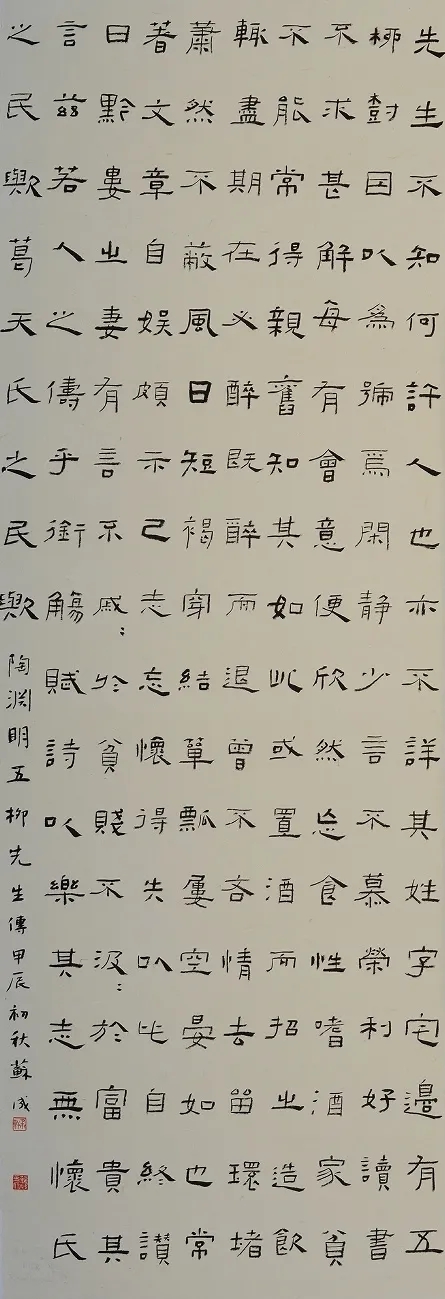 先生不知何許人也亦不詳其姓字宅邊有五
柳樹因以爲號焉閑靜少言不慕榮利好讀書
不求甚解每有會意便欣然忘食性嗜酒家貧
不能常得親舊知其如此或置酒而招之造飲
輒盡期在必醉既醉而退曾不吝情去留環堵
蕭然不蔽風日短褐穿結簞瓢屢空晏如也常
著文章自娛頗示己志忘懷得失以此自終讃
曰黔婁之妻有言不戚〻於貧賤不汲〻於富貴其
言茲若人之儔乎銜觴賦詩以樂其志無懷氏
之民歟葛天氏之民歟
陶淵明五柳先生傳甲辰初秋蘇成